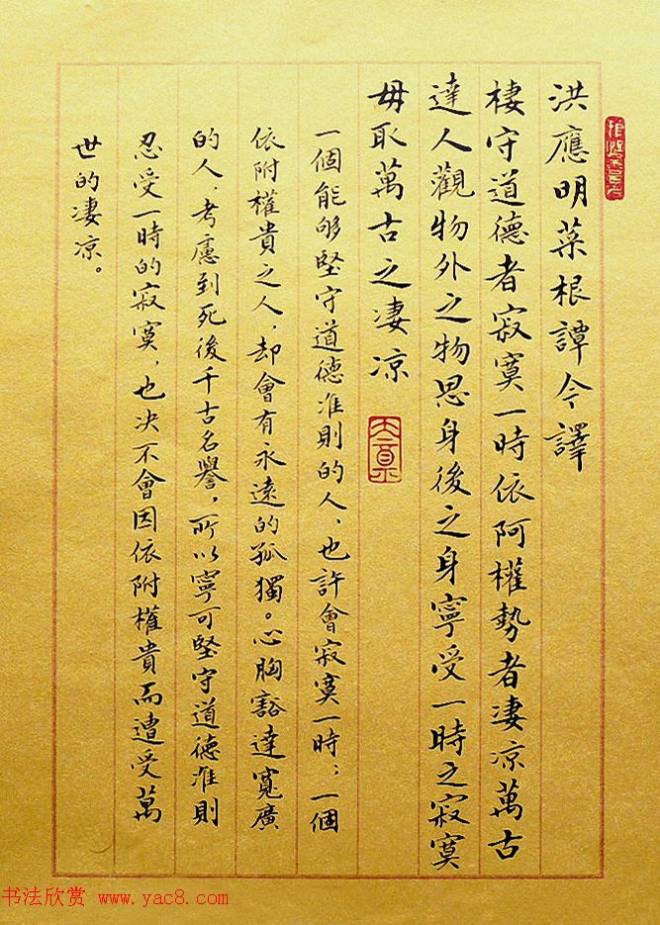 洪應明菜根譚今譯
棲守道德者寂寞一時依阿權勢者淒凉萬古
達人觀物外之物思身後之身寧受一時之寂寞
毋取萬古之淒凉
一個能够堅守道德准則的人、也許會寂寞一時；一個
依附權貴之人，却會有永遠的孤獨。心胸豁達寬廣
的人、考慮到死後千古名譽，所以寧可堅守道德准則
忍受一時的寂寞，也决不會因依附權貴而遭受萬
世的淒凉。
书法欣赏 www.yac8.com